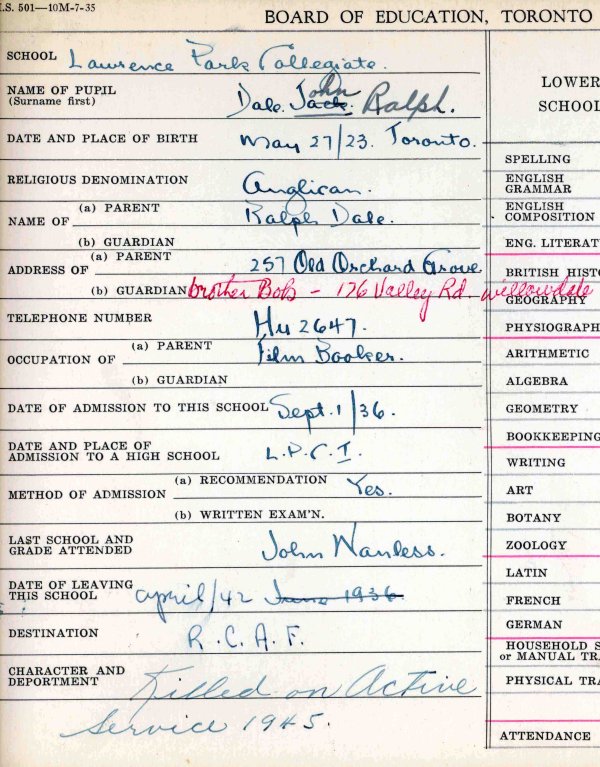 I.S. 501—10M-7-35
BOARD OF EDUCATION, TORONTO
SCHOOL Lawrence Park Collegiate.
NAME OF PUPIL
(Surname first) Dale. Jack. John Ralph.
DATE AND PLACE OF BIRTH May 27/23. Toronto.
RELIGIOUS DENOMINATION Anglican.
NAME OF (a) PARENT Ralph Dale.
(b) GUARDIAN
ADDRESS OF (a) PARENT 257 Old Orchard Grove
(b) GUARDIAN brother Bob - 176 Valley Rd. willowdale
TELEPHONE NUMBER Hu 2647.
OCCUPATION OF (a) PARENT Film Booker.
(b) GUARDIAN
DATE OF ADMISSION TO THIS SCHOOL Sept. 1/36.
DATE AND PLACE OF
ADMISSION TO A HIGH SCHOOL L.P.C.I.
METHOD OF ADMISSION (a) RECOMMENDATION Yes.
(b) WRITTEN EXAM'N.
LAST SCHOOL AND
GRADE ATTENDED John Wanless.
DATE OF LEAVING
THIS SCHOOL April/42 June 1936
DESTINATION R.C.A.F.
CHARACTER AND
DEPORTMENT Killed on Active
Service 1945.
LOWER
SCHOOL
SPELLING
ENGLISH
GRAMMAR
ENGLISH
COMPOSITION
ENG. LITERAT
BRITISH HISTO
GEOGRAPHY
PHYSIOGRAPH
ARITHMETIC
ALGEBRA
GEOMETRY
BOOKKEEPING
WRITING
ART
BOTANY
ZOOLOGY
LATIN
FRENCH
GERMAN
HOUSEHOLD S
or MANUAL TRA
PHYSICAL TRA
ATTENDANCE